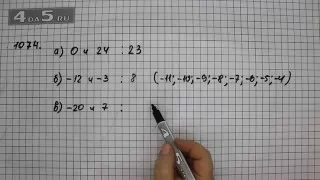 4DA5.RU
1074.
а) 0 и 24 : 23
б) -12 и -3 : 8 (-11; -10; -9; -8; -7; -6; -5; -4)
в) -20 и 7 :